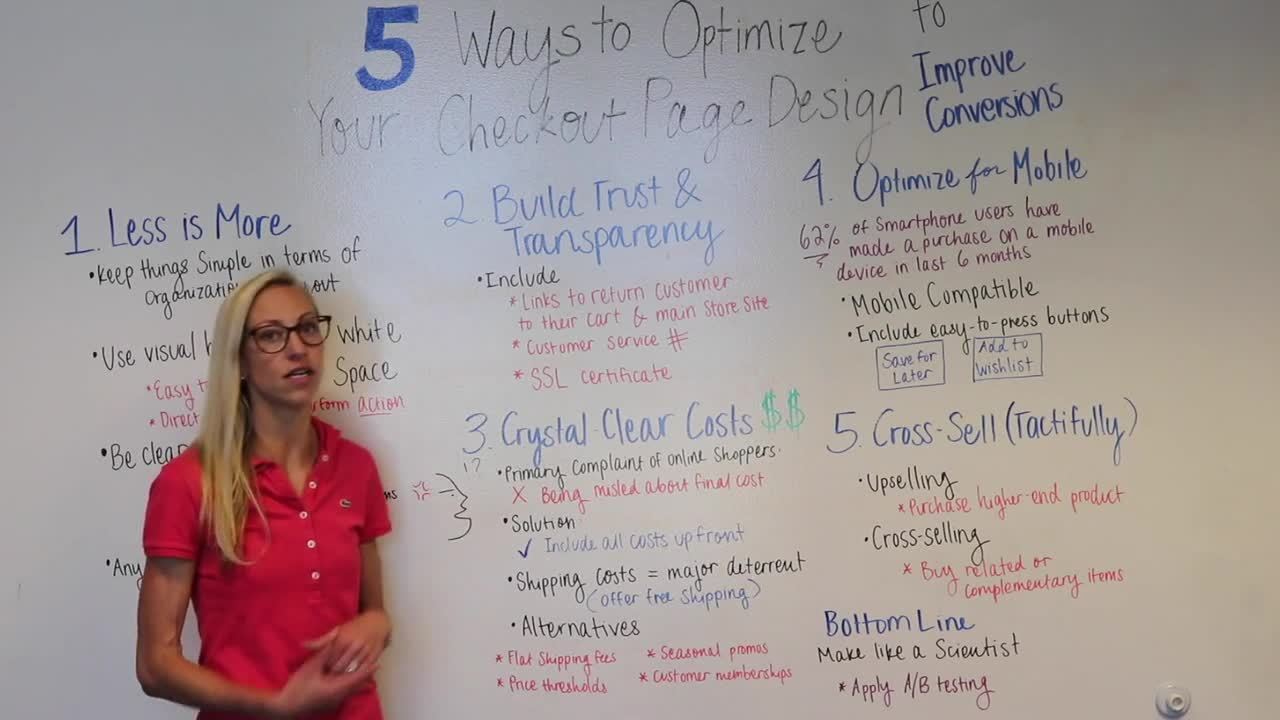 5 Ways to Optimize to
Your Checkout Page Design Improve
Conversions
1. Less is More
•Keep things Simple in terms of
out
•Use visual white
Space
*Easy
*Direct form action
•Be clear
ms
•Any
2. Build Trust &
Transparency
•Include
*Links to return customer
to their cart & main store site
* Customer service #
* SSL certificate
3. Crystal Clear Costs $$
!?
•Primary Complaint of online Shoppers.
X Being misled about final cost
•Solution
✓ Include all costs upfront
•Shipping costs = major deterrent
(offer free shipping)
•Alternatives
* Flat Shipping fees * Seasonal promos
* Price thresholds * Customer memberships
4. Optimize for Mobile
62% of Smartphone users have
made a purchase on a mobile
device in last 6 months
•Mobile Compatible
•Include easy-to-press buttons
Save for
Later
Add to
Wishlist
5. Cross-Sell (Tactifully)
•Upselling
*Purchase higher-end product
•Cross-selling
* Buy related or
complementary items
Bottom Line
Make like a Scientist
*Apply A/B testing